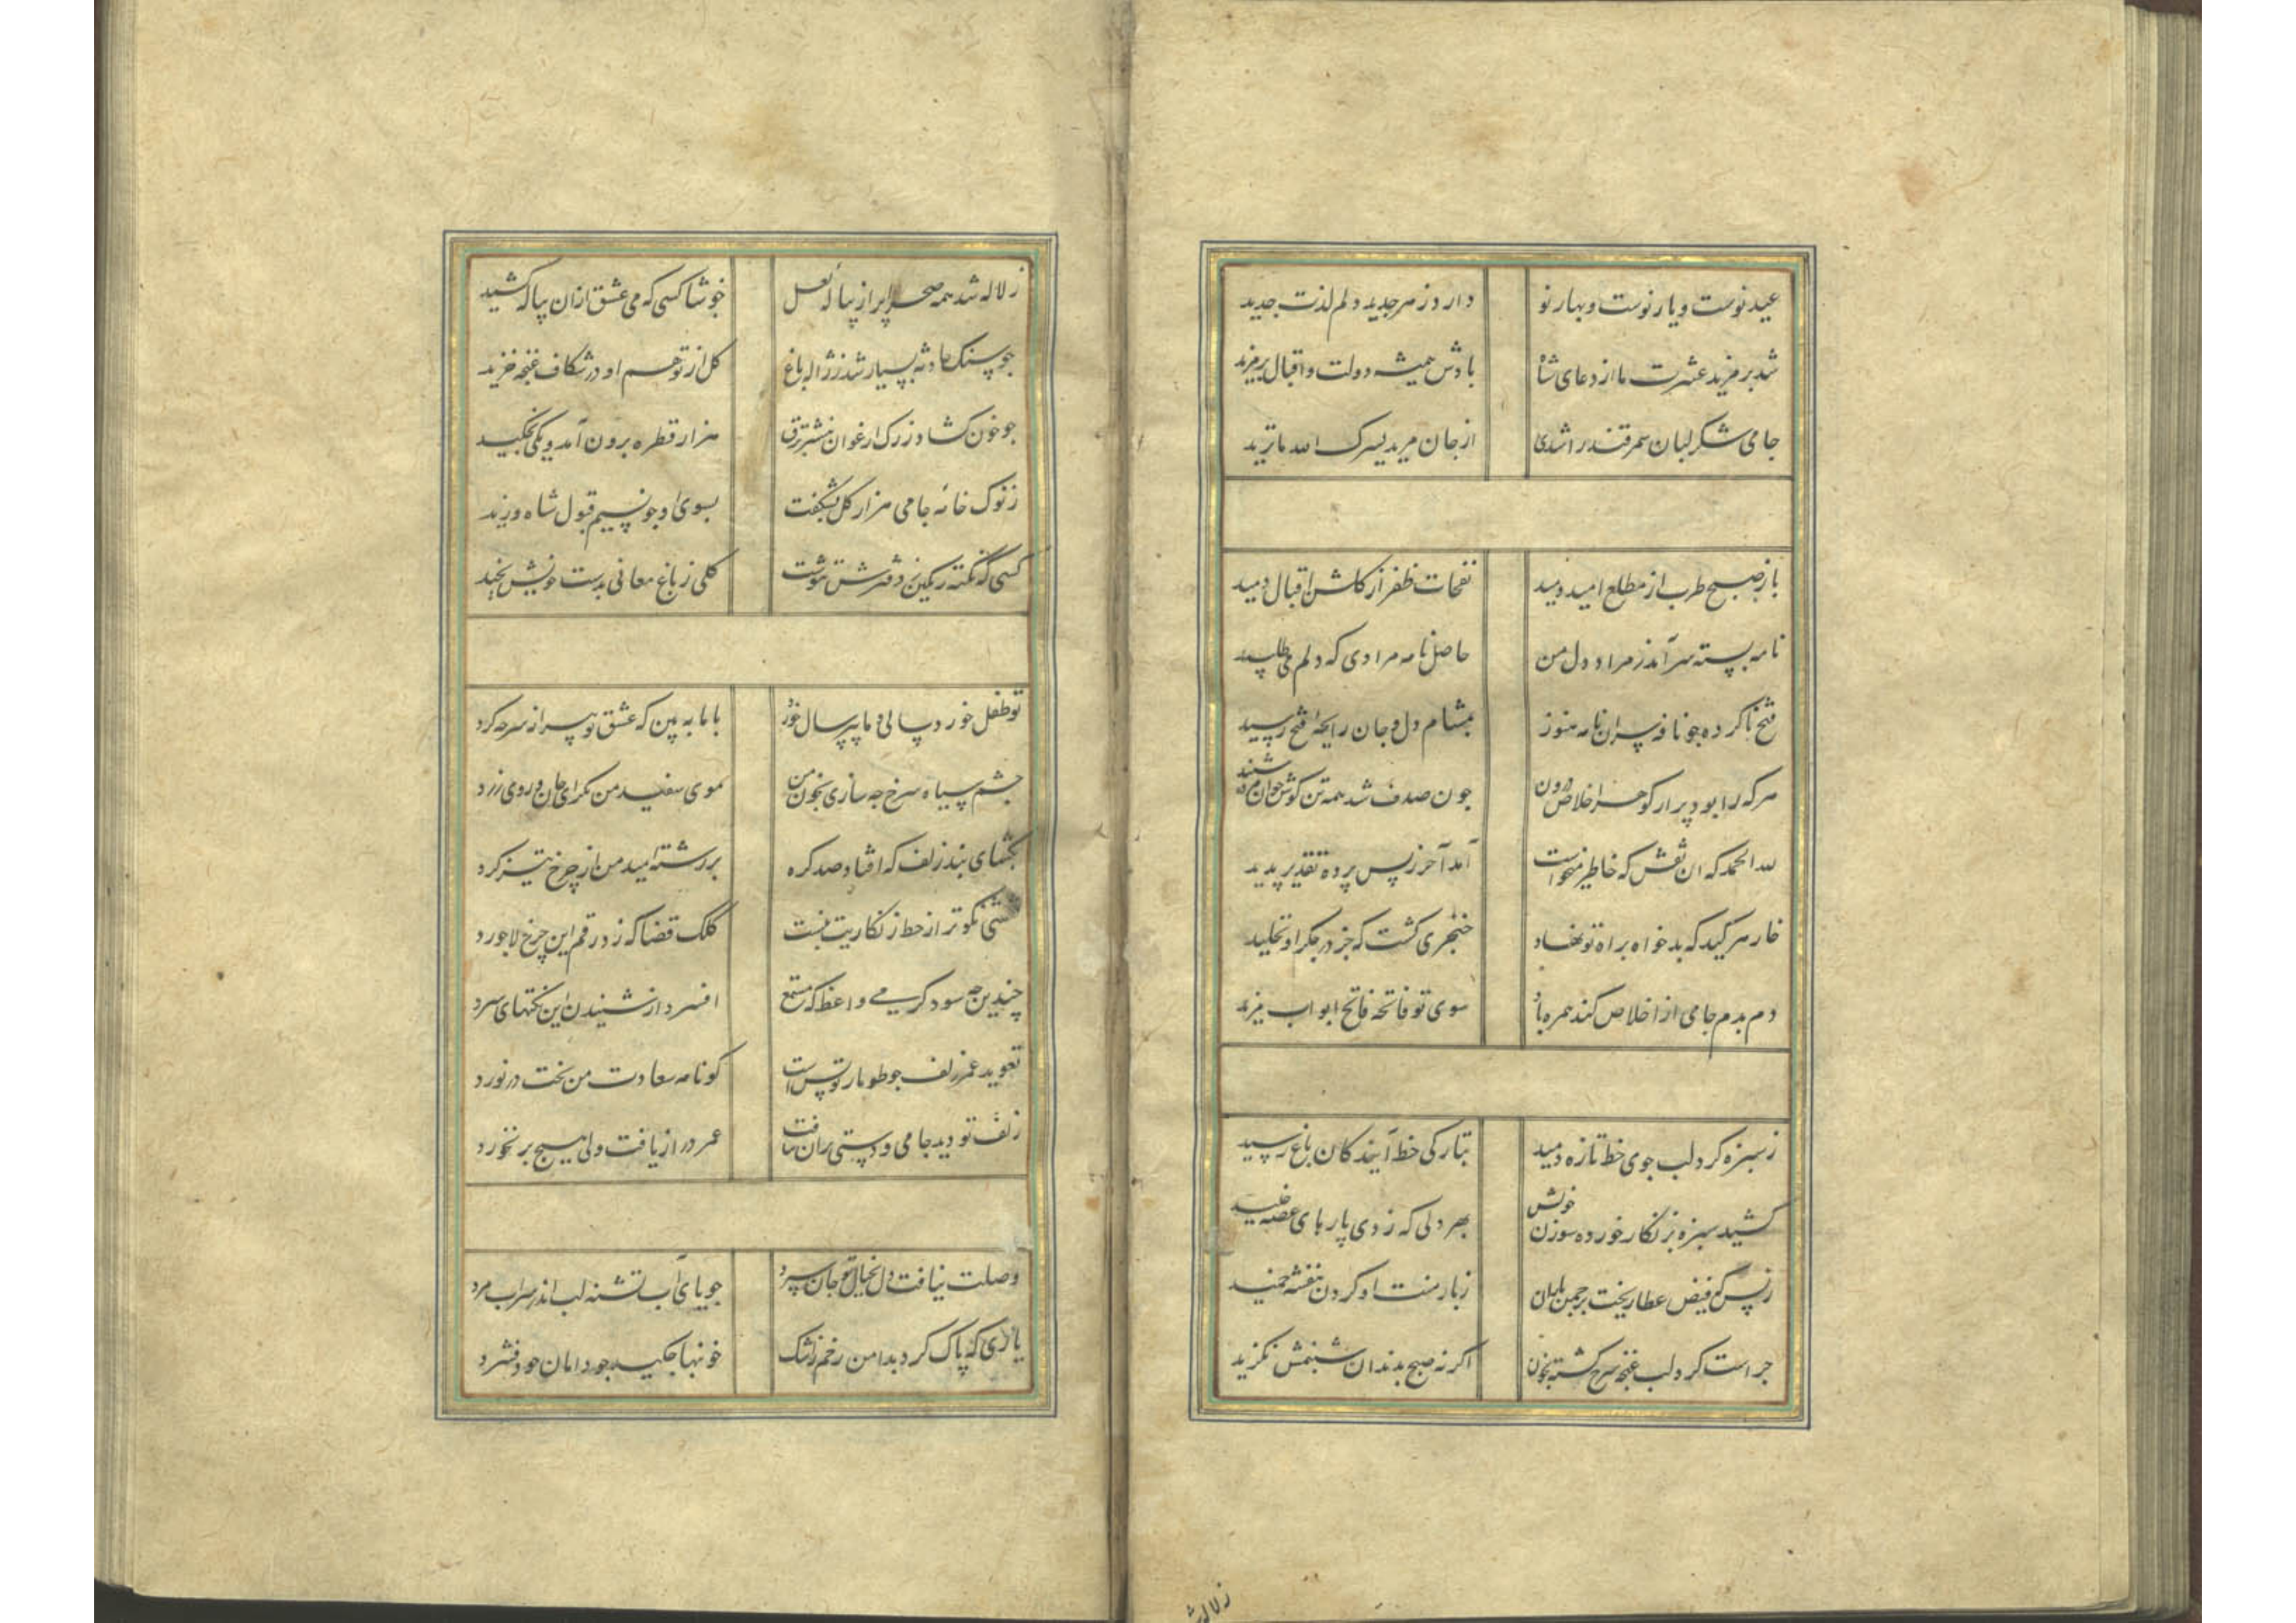 عید نوست و یار نوست و بهار نو دارد ز مهر جدید دلم لذت جدید
شد بر مزید عشرت ما از دعای شاه بادش همیشه دولت و اقبال بر مزید
جامی شکر لبان سمرقند را شدی از جان مرید یسرک الله ما ترید
باز صبح طرب از مطلع امید دمید نفحات ظفر از گلشن اقبال دمید
نامه بسته سر آمد ز مراد دل من حاصل نامه مرادی که دلم می طلبید
فتح ناکرده جو نافه سر ان نامه هنوز بمشام دل و جان رایحه فتح رسید
هرکه را بود پر از گوهر اخلاص درون جون صدف شد همه تن گوش جو این مژده شنید
لله الحمد که ان نقش که خاطر میخواست آمد آخر ز پس پرده تقدیر پدید
خار هر کید که بدخواه براه تو نهاد خنجری گشت که جز در جگر او نخلید
دم بدم جامی از اخلاص کند همره باد سوی تو فاتحه فاتح ابواب مزید
ز سبزه گرد لب جوی خط تازه دمید بتارکی خط آیندکان باغ رسید
کشید سبزه بزنگار خورده سوزن خویش بهر دلی که ز دی پارهای غصه خلید
ز بس که فیض عطا ریخت بر جمن باران ز بار منت او گردن بنفشه خمید
جراست گرد لب غنجه سرخ گشته بخون اگر نه صبح بدندان شبنمش نگزید
ز لاله شد
ز لاله شد همه صحرا پر از پیاله لعل خوشا کسی که می عشق ازان پیاله کشید
جو سنک حادثه بسیار شد ز ژاله باغ گل از توهم او در شکاف غنجه خزید
جو خون کشاد ز رک ارغوان بنشتر برق هزار قطره برون آمد و یکی نجکید
ز نوک خامه جامی هزار گل بشکفت بسوی او جو نسیم قبول شاه وزید
کسی که نکته رنگین ز دفترش بنوشت گلی ز باغ معانی بدست خویش بچید
تو طفل خورد سالی و ما پیر سال خورد با ما به بین که عشق تو پیرانه سر جه کرد
جشم سیاه سرخ جه سازی بخون من موی سفید من نگر ای جان و روی زرد
بگشای بند زلف که افتاد صد گره بر رشته امید من از چرخ تیز گرد
نقشی نکوتر از خط زنگاریت نبست کلک قضا که زد رقم این چرخ لاجورد
چندین جه سود گرمی واعظ که مستمع افسرد از شنیدن این نکتهای سرد
تعوید عمر زلف جو طومار تو بس است کو نامه سعادت من بخت در نورد
زلف تو دید جامی و دستی بران نیافت عمر دراز یافت ولی هیچ بر نخورد
وصلت نیافت دل بخیال تو جان سپرد جویای آب تشنه لب اندر سراب مرد
یاری که پاک کرد بدامن رخم ز اشک خونها جکید جو دامان خود فشرد